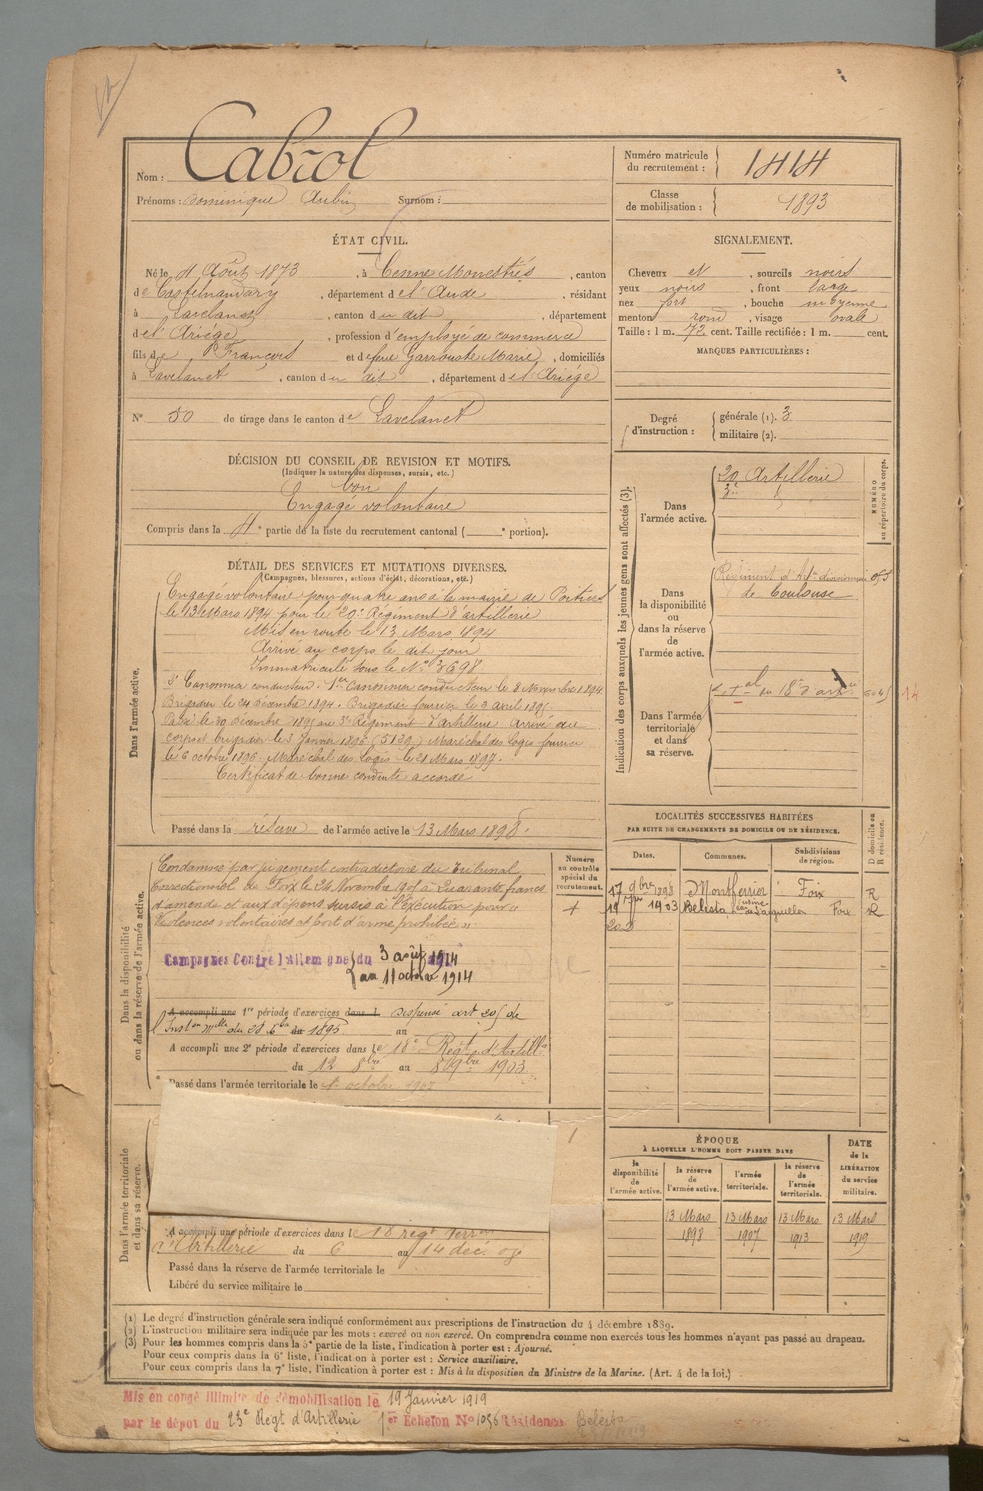 Nom : Cabrol
Prénoms : Dominique Aubin Surnom :
Numéro matricule du recrutement : 1414
Classe de mobilisation : 1893
ÉTAT CIVIL.
Né le 4 Août 1873, à Cenne Monestiés, canton
de Castelnaudary, département de l'Aude, résidant
à Lavelanet, canton du dit, département
de l'Ariége, profession d'employé de commerce
fils de François et de feue Garrouste Marie, domiciliés
à Lavelanet, canton du dit, département de l'Ariége
N° 50 de tirage dans le canton de Lavelanet
SIGNALEMENT.
Cheveux et, sourcils noirs
yeux noirs, front large
nez fort, bouche moyenne
menton rond, visage ovale
Taille : 1 m. 72 cent. Taille rectifiée : 1 m. cent.
MARQUES PARTICULIÈRES :
Degré d'instruction : générale (1). 3
militaire (2).
DÉCISION DU CONSEIL DE REVISION ET MOTIFS.
(Indiquer la nature des dispenses, sursis, etc.)
bon
Engagé volontaire
Compris dans la 4e partie de la liste du recrutement cantonal ( e portion).
DÉTAIL DES SERVICES ET MUTATIONS DIVERSES.
(Campagnes, blessures, actions d'éclat, décorations, etc.)
Dans l'armée active.
Engagé volontaire pour quatre ans à la mairie de Poitiers
le 13 Mars 1894 pour le 20e Régiment d'artillerie
Mis en route le 13 Mars 1894
Arrivé au corps le dit jour
Immatriculé sous le N° 3698
2e Canonnier conducteur. 1er Canonnier conducteur le 8 Novembre 1894
Brigadier le 24 décembre 1894. Brigadier fourrier le 3 avril 1895.
Passé le 30 décembre 1895 au 3e Régiment d'artillerie. Arrivé au
corps et brigadier le 3 Janvier 1896 (5139) Maréchal des logis fourrier
le 6 octobre 1896. Maréchal des logis le 21 Mars 1897.
Certificat de bonne conduite accordé
Passé dans la réserve de l'armée active le 13 Mars 1898.
Indication des corps auxquels les jeunes gens sont affectés (3).
NUMÉRO au répertoire du corps.
Dans l'armée active.
20 Artillerie
3e
Dans la disponibilité ou dans la réserve de l'armée active.
Régiment d'Art
de Toulouse
Dans l'armée territoriale et dans sa réserve.
du 18e d'art
14
LOCALITÉS SUCCESSIVES HABITÉES
PAR SUITE DE CHANGEMENTS DE DOMICILE OU DE RÉSIDENCE.
Dates. Communes. Subdivisions de région. D domicile ou R résidence.
17 9bre 1898 Montferrier Foix R
19 1903 Belesta Foix R
Dans la disponibilité ou dans la réserve de l'armée active.
Numéro au contrôle spécial du recrutement.
Condamné par jugement contradictoire du Tribunal
Correctionnel de Foix le 24 Novembre 1905 à Quarante francs
d'amende et aux dépens sursis à l'exécution pour «
Violences volontaires et port d'arme prohibée »
Campagnes Contre l'Allemagne du 3 août 1914
au 11 octobre 1914
A accompli une 1re période d'exercices dans l Dispense art 205 de
l'Inston Mlle du 28 Xbre du 1895 au
A accompli une 2e période d'exercices dans le 18e Régt d'Artille
du 12 8bre au 8 9bre 1903
Passé dans l'armée territoriale le 1er octobre 1907
Dans l'armée territoriale et dans sa réserve.
A accompli une période d'exercices dans le 18 régt terr
d'Artillerie du 6 au 14 déc. 09
Passé dans la réserve de l'armée territoriale le
Libéré du service militaire le
ÉPOQUE
A LAQUELLE L'HOMME DOIT PASSER DANS
DATE de la LIBÉRATION du service militaire.
la disponibilité de l'armée active. la réserve de l'armée active. l'armée territoriale. la réserve de l'armée territoriale.
13 Mars 13 Mars 13 Mars 13 Mars
1898 1907 1913 1919
(1) Le degré d'instruction générale sera indiqué conformément aux prescriptions de l'instruction du 4 décembre 1889.
(2) L'instruction militaire sera indiquée par les mots : exercé ou non exercé. On comprendra comme non exercés tous les hommes n'ayant pas passé au drapeau.
(3) Pour les hommes compris dans la 5e partie de la liste, l'indication à porter est : Ajourné.
Pour ceux compris dans la 6e liste, l'indication à porter est : Service auxiliaire.
Pour ceux compris dans la 7e liste, l'indication à porter est : Mis à la disposition du Ministre de la Marine. (Art. 4 de la loi.)
Mis en congé illimité de démobilisation le 19 Janvier 1919
par le dépôt du 23e Régt d'Artillerie 1er Echelon No 1056 Résidence Belesta